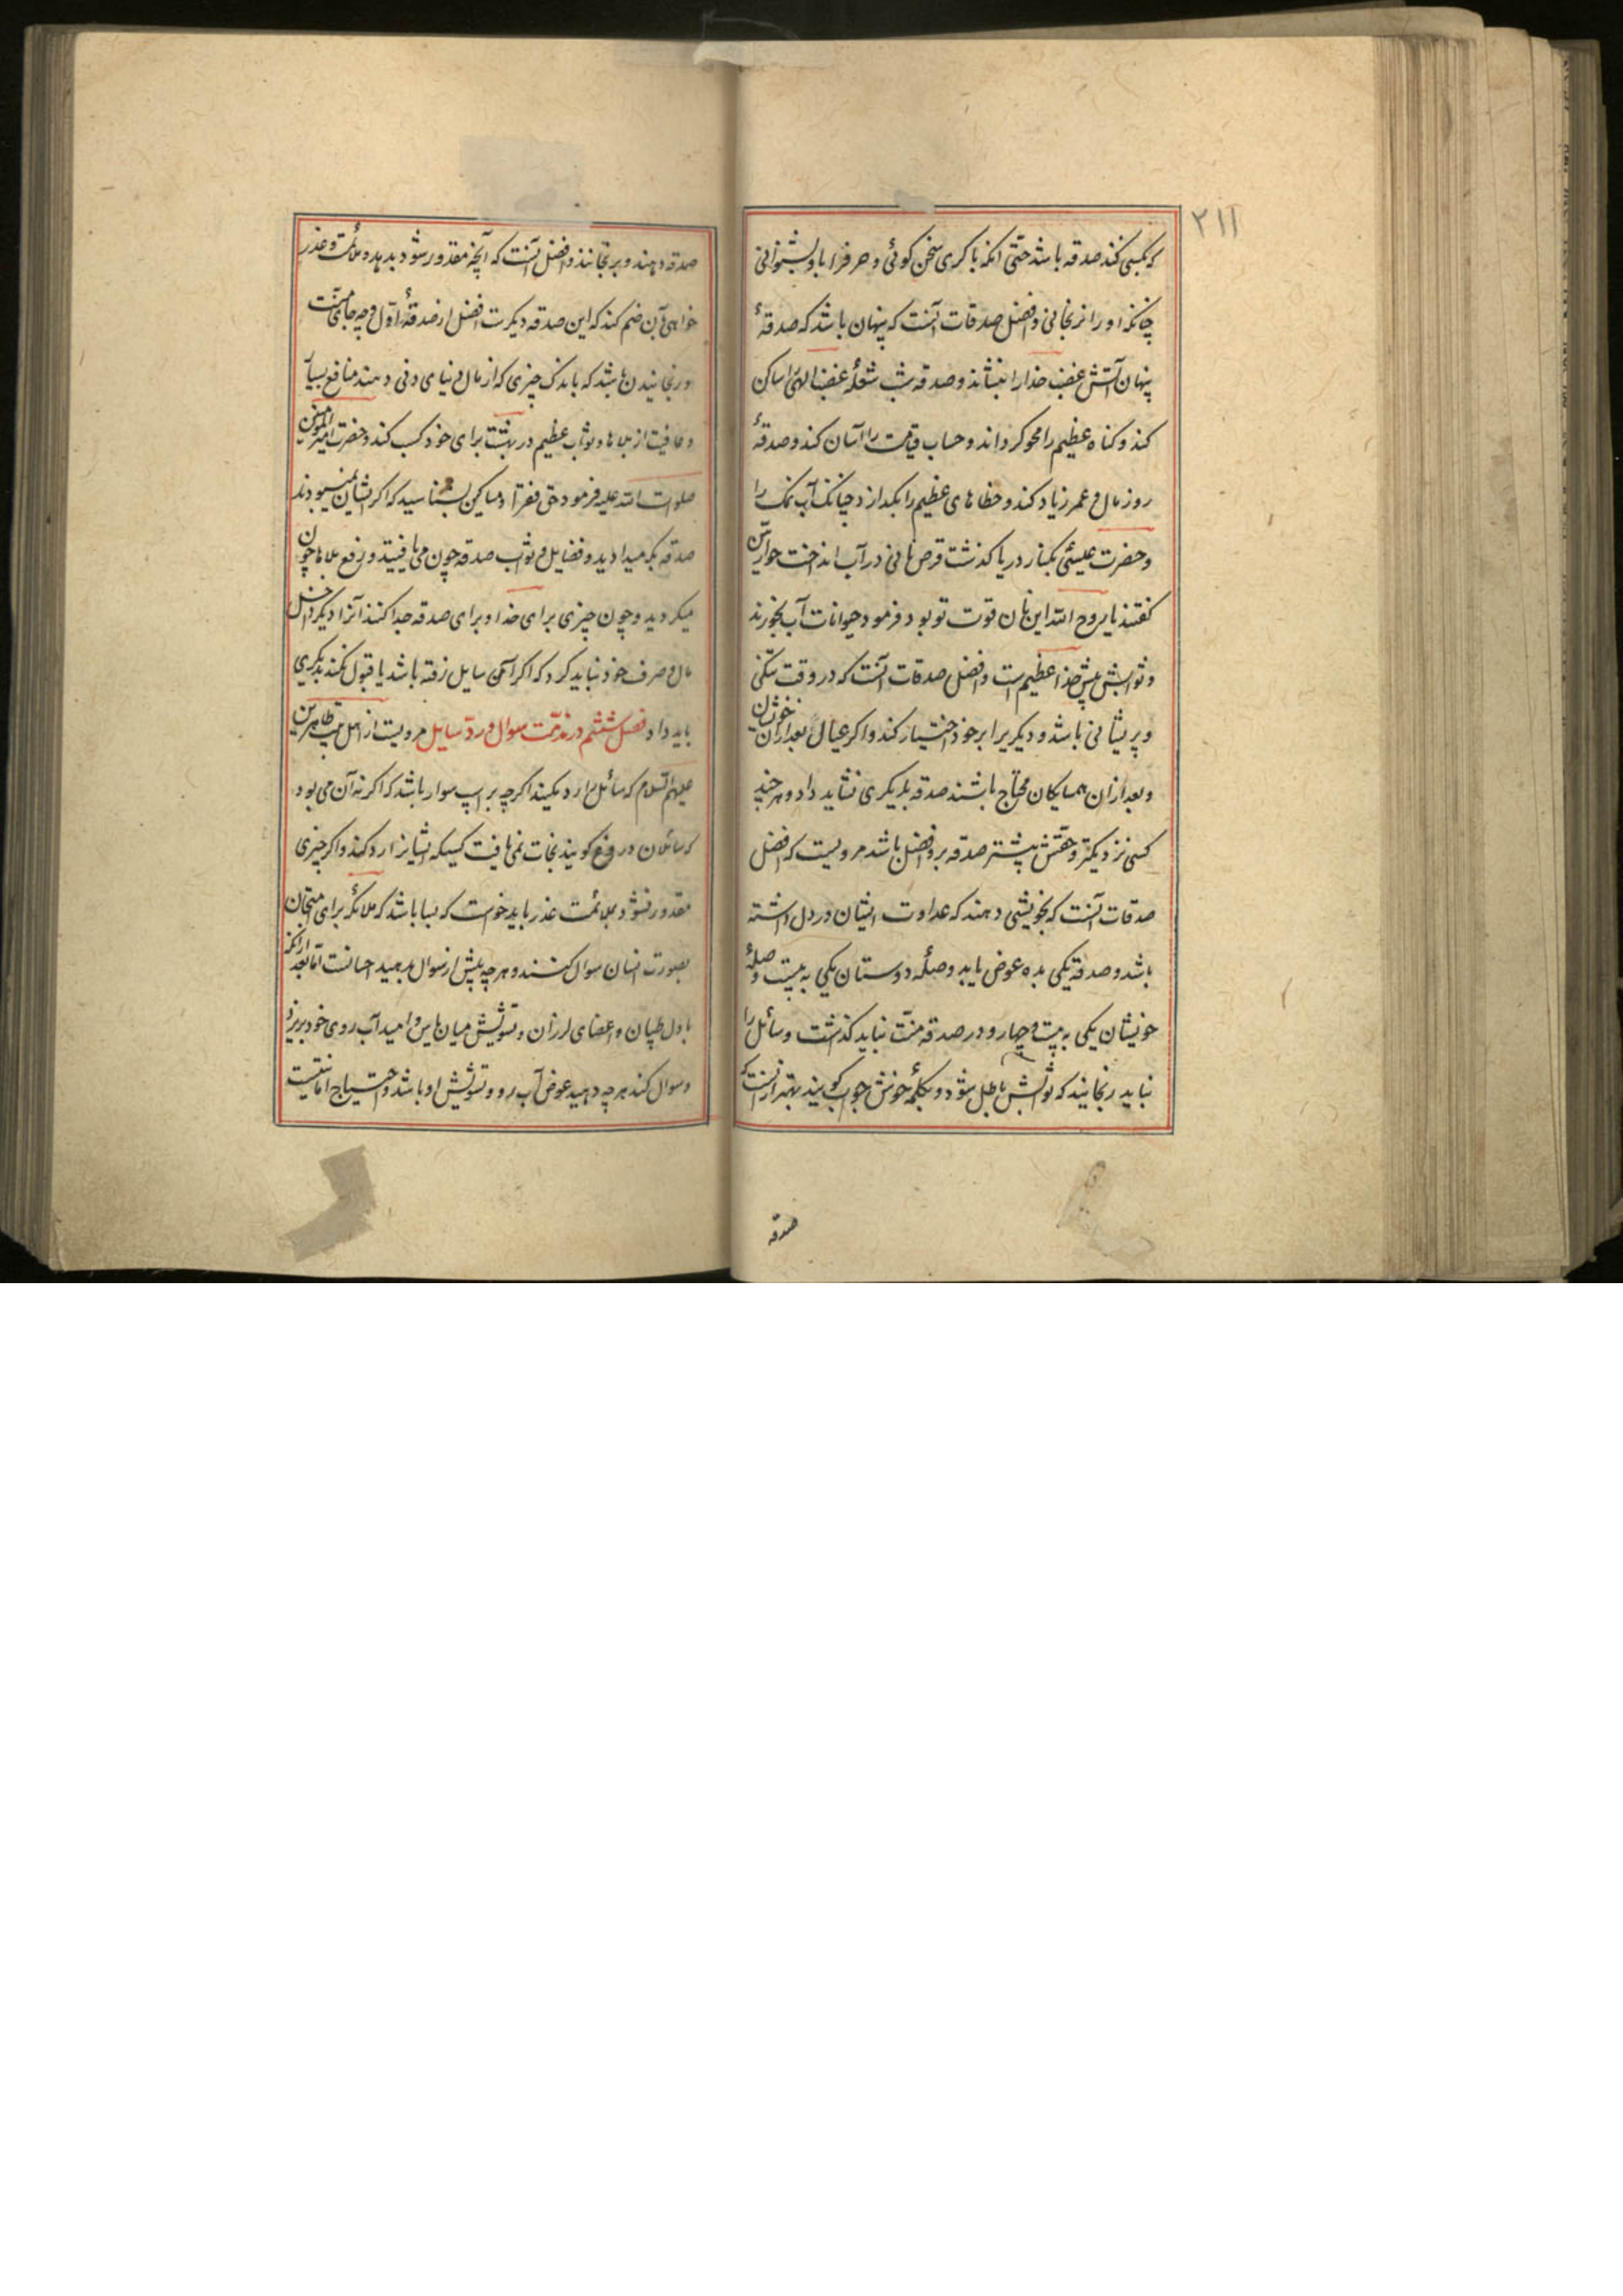 ۲۱۱
که بکسی کند صدقه باشد حتّی آنکه با کری سخن کوئی و حرف را باو بشنوانی
چنانکه او را نرنجانی و افضل صدقات آنست که پنهان باشد که صدقهٔ
پنهان آتش غضب خدا را بنشاند و صدقه شب شعلهٔ غضب الهی را ساکن
کند و کناه عظیم را محو کرداند و حساب قیامت را آسان کند و صدقهٔ
روز مال و عمر زیاد کند و خطاهای عظیم را بکدازد چنانکه آب نمک را
و حضرت عیسی بکنار دریا کذشت قرص نانی در آب انداخت حواریین
کفتند یا روح الله این نان قوت تو بود فرمود حیوانات آب بخورند
و ثوابش پیش خدا عظیم است و افضل صدقات آنست که در وقت تنکی
و پریشانی باشد و دیکریرا بر خود اختیار کند و اکر عیال و بعد از آن خویشان
و بعد از ان همسایکان محتاج باشند صدقه بدیکری نشاید داد و هر چند
کسی نزدیکتر و حقش بیشتر صدقه برو افضل باشد مرویست که افضل
صدقات آنست که بخویشی دهند که عداوت ایشان در دل داشته
باشد و صدقه یکی بده عوض یابد و صلهٔ دوستان یکی به بیست و صلهٔ
خویشان یکی به بیست و چهار و در صدقه منّت نباید کذاشت و سائل را
نباید رنجانید که ثوابش باطل شود و بکلمهٔ خوش جواب کویند بهتر از آنست که
صدقه
صدقه دهند و برنجانند و افضل آنست که آنچه مقدور شود بدهد و ملائمت و عذر
خواهی بآن ضم کند که این صدقه دیکرست افضل از صدقهٔ اوّل و چه جای منّت
و رنجانیدن باشد که باندک چیزی که از مال دنیای دنی دهند منافع بسیار
و عافیت از بلاها و ثواب عظیم در بهشت برای خود کسب کند و حضرت امیر المؤمنین
صلوات الله علیه فرمود حق فقرا و مساکین بشناسید که اکر ایشان نمیبودند
صدقه بکه میدادید و فضایل و ثواب صدقه چون می یافتید و رفع بلاها چون
میکردید و چون چیزی برای خدا و برای صدقه جدا کنند آنرا دیکر داخل
مال و صرف خود نباید کرد که اکر آن سایل رفته باشد یا قبول نکند بدیکری
باید داد فصل ششم در مذمّت سوال و ردّ سایل مرویست از اهل بیت طاهرین
علیهم السّلام که سائل را رد مکنید اکرچه بر اسب سوار باشد که اکر نه آن می بود
که سائلان دروغ کویند نجات نمی یافت کسیکه ایشانرا رد کند و اکر چیزی
مقدور نشود بملائمت عذر باید خواست که بسا باشد که ملائکه برای امتحان
بصورت انسان سوال کنند و هر چه پیش از سوال بدهید احسانست امّا بعد از آنکه
با دل طپان و اعضای لرزان و تشویش میان یاس و امید آب روی خود بریزد
و سوال کند هر چه دهید عوض آب رو و تشویش او باشد و احتیاج